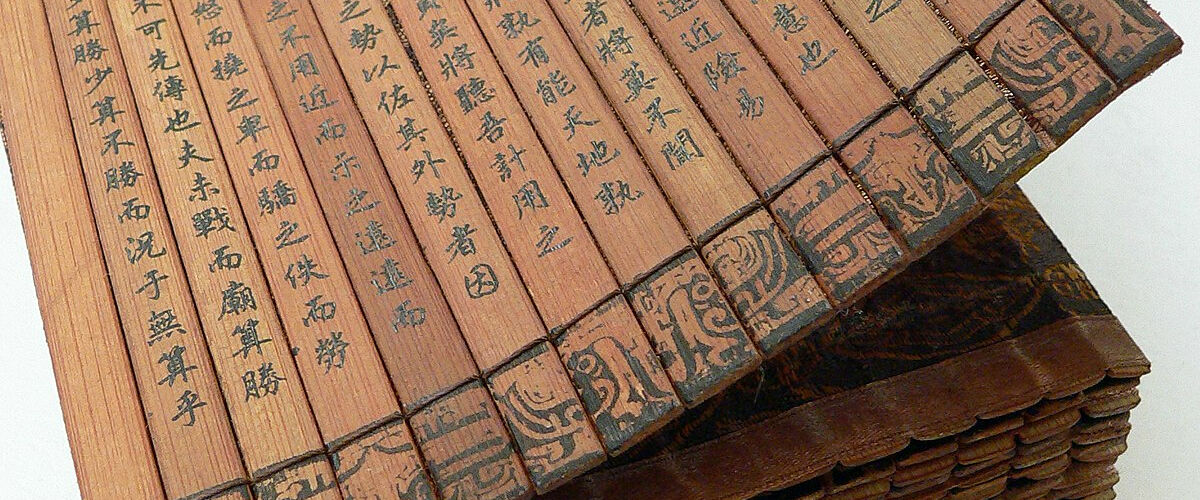 之
意也
遠近險易
者將莫不聞
孰有能天地孰
矣將聽吾計用之
之勢以佐其外勢者因
之不用近而示之遠遠而
怒而撓之卑而驕之佚而勞
可先傳也夫未戰而廟算勝
算勝少算不勝而況于無算乎